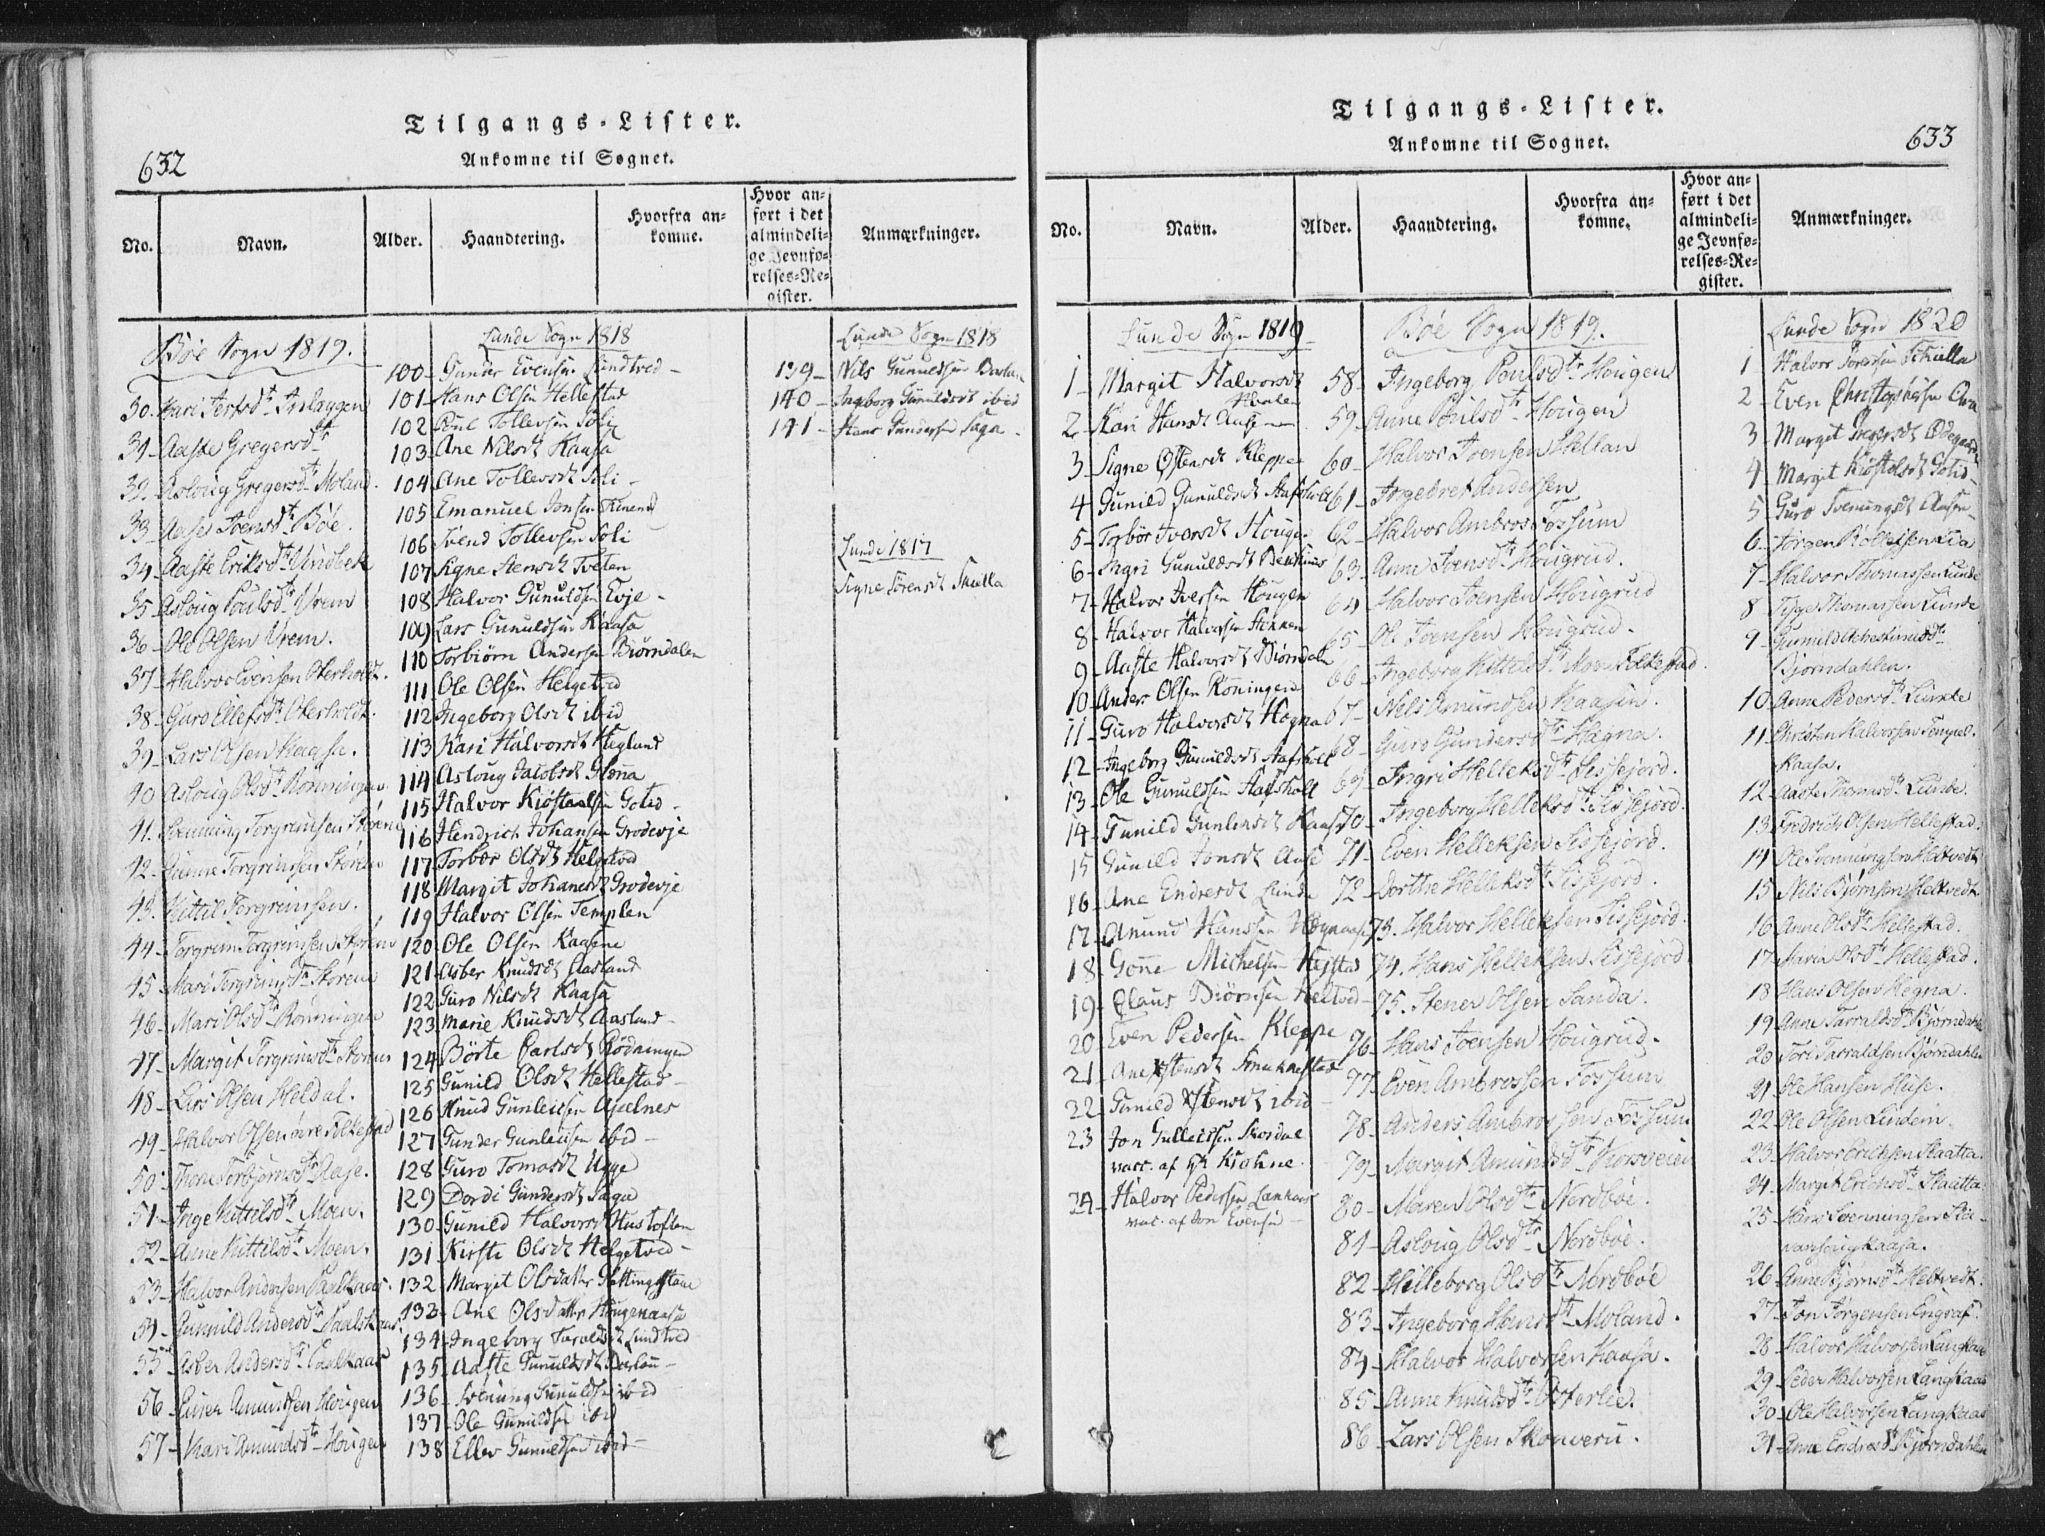 632
Tilgangs-Lister.
Ankomne til Sognet.
No.
Navn.
Alder.
Haandtering.
Hvorfra an-
komne.
Hvor an-
ført i det
almindeli-
ge Jevnfø-
relses-Re-
gister.
Anmærkninger.
Bøe Sogn 1819.
30. Kari
31- Aaste Gregersdtr
32. Asloug Gregersdtr Moland.
33- Aase Joensdtr Bøe.
34- Aaste Eriksdtr Vindbek
35 Asloug Poulsdtr Vrem
36- Ole Olsen Vrem.
37- Halvor Evensen Oterholdt.
38- Guro Ellefsdtr Oterholdt.
39- Lars Olsen Kaasa.
40 Asloug Olsdtr Rönningen
41. Svenning Torgrimsen Storene
42- Gunne Torgrimsen Storene
43. Kittil Torgrimsen.
44- Torgrim Torgrimsen Storene
45- Mari Torgrimsdtr Storene
46- Mari Olsdtr Rönningen
47- Margit Torgrimsdtr Storene
48- Lars Olsen Heldal.
49- Halvor Olsen övre Folkestad
50- Thone Torbjørnsdtr Aase.
51- Inge Kittilsdtr Moen.
52- Anne Kittilsdtr Moen.
53- Halvor Andersen Paalskaas.
54- Gunnild Andersdtr Paalskaas.
55- Asber Andersdtr Paalskaas
56 Einer Amundsen Hougen
57- Kari Amundsdtr Hougen
Lunde Sogn 1818
100- Gunder Evensen Lundtved -
101- Hans Olsen Hellestad
102- Poul Tollevsen Soli
103- Ane Nilsdt Kaasa
104- Ane Tollevsdt Soli -
105 Emanuel Jonsen
106 Svend Tollevsen Soli
107 Signe Stensdt Tveten
108 Halvor Gunuldsen Evje -
109 Lars Gunuldsen Kaasa
110 Torbiörn Andersen Biörndalen
111 Ole Olsen Helgetved
112 Ingeborg Olsdt ibid
113 Kari Halvorsdt Hegland
114 Asloug Jacobsdt
115 Halvor Kiöstaalsen Goted -
116 Hendrich Johansen Grodevje
117 Torbør Olsdt Helgetved
118 Margit Johanesdt Grodevje
119 Halvor Olsen Templen
120 Ole Olsen Kaasene
121 Asber Knudsdt Aasland
122 Guro Nilsdt Kaasa
123 Marie Knudsdt Aasland -
124 Börte Carlsdt Rödningen
125 Gunild Olsdt Hellestad -
126 Knud Gunleiksen Apelnes
127 Gunder Gunleiksen ibid -
128 Guro Tomasdt Ugge
129 Dordi Gundersdt Saga
130- Gunild Halvorsdt Hustoften
131 Kirsti Olsdt Helgetved -
132- Margit Olsdatter
133- Ane Olsdatter Haugenaasa
134- Ingeborg Taraldsdt Lundtved
135- Aaste Gunuldsdt -
136- Svenung Gunuldsen ibid
137- Ole Gunuldsen ibid
138 Ellev Gunuldsen ibid -
Lunde Sogn 1818
139- Nils Gunuldsen
140- Ingeborg Gunuldsdt ibid
141- Hans Gundersen Saga -
Lunde 1817
Signe Sörensdt Skiella
633
Tilgangs-Lister.
Ankomne til Sognet.
No.
Navn.
Alder.
Haandtering.
Hvorfra an-
komne.
Hvor an-
ført i det
almindeli-
ge Jevnfø-
relses-Re-
gister.
Anmærkninger.
Lunde Sogn 1819
1- Margit Halvorsdt
2- Kari Hansdt Aase
3- Signe Østensdt Kleppe
4 Gunild Gunuldsdt Hafsholt
5- Torbör Iversdt Hougen
6- Ingri Gunuldsdt
7- Halvor Iversen Hougen
8- Halvor Halvorsen
9- Aaste Halvorsdt Biørndalen
10- Anders Olsen Röningen
11- Guro Halvorsdt Hogna
12- Ingeborg Gunuldsdt Hafsholt
13- Ole Gunuldsen Hafsholt
14- Gunild Gunleksdt Kaasa
15 Gunild Jonsdt Aase
16- Ane Endresdt Lunde
17- Amund Hansen
18- Gone Michelsen
19- Claus Biörnsen Heltved -
20 Even Pedersen Kleppe
21- Ane Østensdt
22- Gunild Østensdt ibid -
23 Jon Gulleiksen
vacc. af Hr Krohne
24- Halvor Pedersen Lankaas
vac. af Jon Evensen -
Bøe Sogn 1819.
58- Ingeborg Poulsdtr Hougen
59- Anne Poulsdtr Hougen
60- Halvor Joensen
61- Ingebret Andersen
62- Halvor Ambros Fossum
63- Anne Joensdtr Hougrud.
64 Halvor Joensen Hougrud
65- Ole Joensen Hougrud.
66- Ingeborg Kittilsdtr Folkestad.
67- Nels Amundsen Kaasin.
68- Guro Gundersdtr Hægna.
69- Ingri Helleksdtr Sissejord.
70- Ingeborg Helleksdtr Sissejord.
71- Even Helleksen Sissejord.
72- Dorthe Helleksdtr Sissejord.
73. Halvor Helleksen Sissejord.
74. Hans Helleksen Sissejord
75. Stener Olsen Sanda.
76- Hans Joensen Hougrud.
77- Even Ambrossen Fossum
78- Anders Ambrossen Fossum
79- Margit Amundsdtr
80- Maren Olsdtr Nordbøe.
81- Asloug Olsdtr Nordbøe.
82- Hilleborg Olsdtr Nordbøe
83- Ingeborg Hansdtr Moland.
84- Halvor Halvorsen Kaasa.
85- Anne Knudsdtr Østerlie.
86- Lars Olsen Skonveru.
Lunde Sogn 1820
1 Halvor Sörensen Skiella
2- Even Christophersen
3 Margit Ødegaard
4 Margit Kiöstolsdt Goted-
5 Guro Svenungsdt Aasen
6- Jørgen Rolleivsen Lia
7- Halvor Thomassen Lunde
8 Tyge Thomassen Lunde
9- Gunnild
Bjørndahlen.
10 Anne Pedersdtr Lunde
11 Christen Halvorsen Tempel.
Kaasa.
12- Aaste Thomasdtr Lunde.
13- Fredrich Olsen Hellestad.
14 Ole Svenningsen Heltvedt
15 Nils Bjørnsen Heltvedt.
16 Anne Olsdtr Hellestad.
17- Maren Olsdtr Hellestad.
18 Hans Olsen Hegna.
19 Anne Tarraldsdtr Bjørndahlen
20 Tori Tarraldsen Bjørndahlen
21 Ole Hansen Huse.
22- Ole Olsen Lindem.
23- Halvor Erichsen Slaatta.
24- Margit Erichsdtr Slaatta.
25- Hans Svenningsen
Kaasa.
26 Anne Bjørnsdtr Heltvedt.
27- Jon Jørgensen
28- Halvor Halvorsen Langkaas
29 Peder Halvorsen Langkaas
30- Ole Halvorsen Langkaas
31- Anne Endresdtr Bjørndahlen